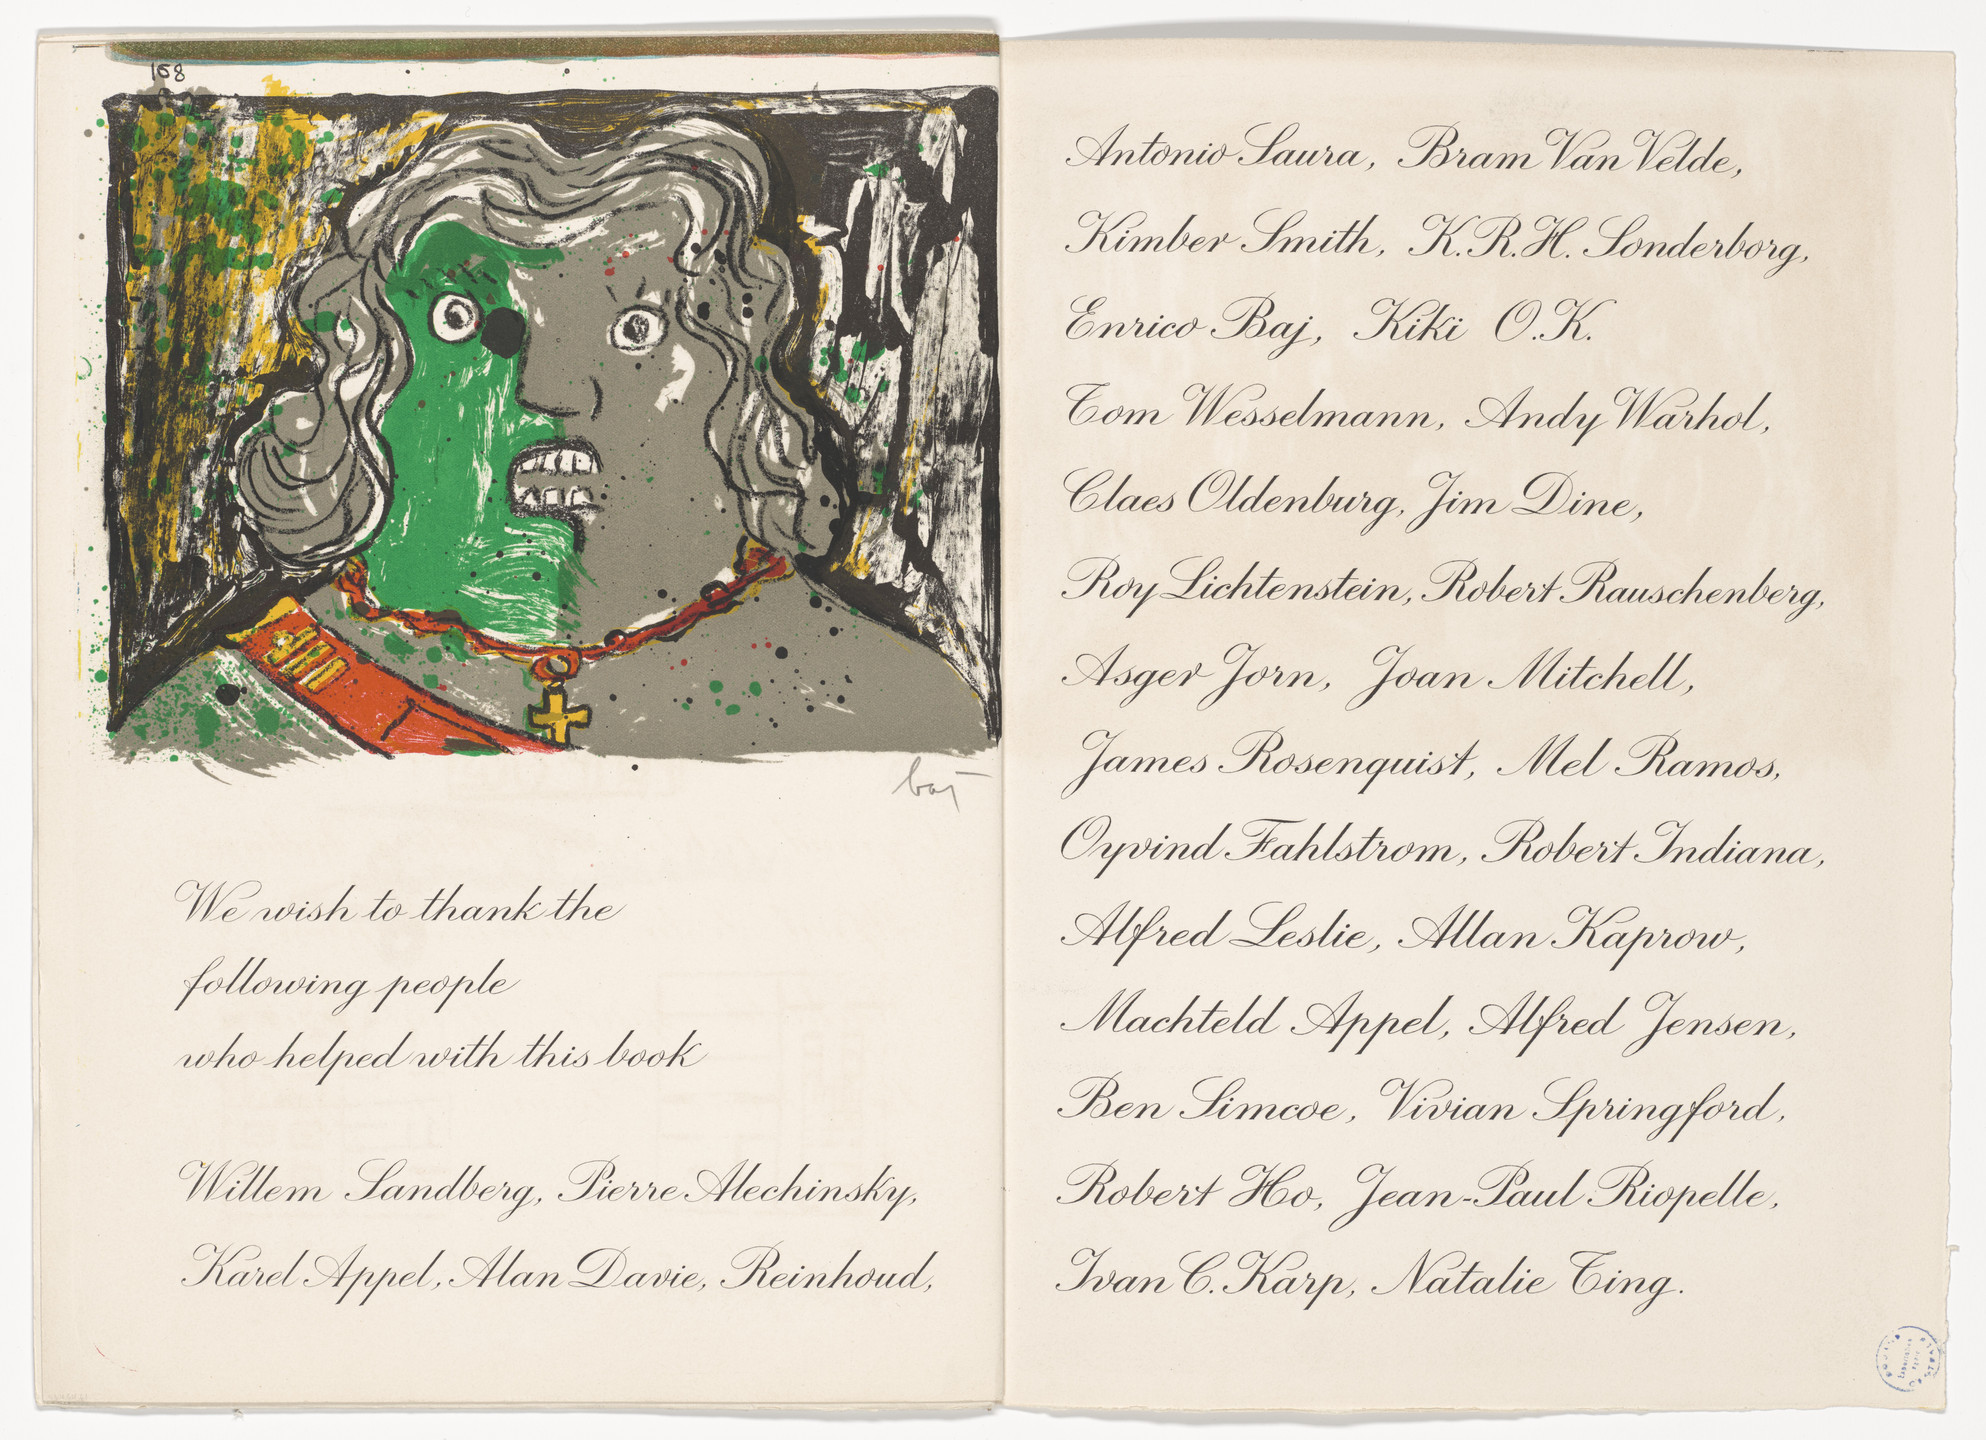 168
baj
We wish to thank the
following people
who helped with this book
Willem Sandberg, Pierre Alechinsky,
Karel Appel, Alan Davie, Reinhoud,
Antonio Saura, Bram Van Velde,
Kimber Smith, K.R.H. Sonderborg,
Enrico Baj, Kiki O.K.
Tom Wesselmann, Andy Warhol,
Claes Oldenburg, Jim Dine,
Roy Lichtenstein, Robert Rauschenberg,
Asger Jorn, Joan Mitchell,
James Rosenquist, Mel Ramos,
Oyvind Fahlstrom, Robert Indiana,
Alfred Leslie, Allan Kaprow,
Machteld Appel, Alfred Jensen,
Ben Simcoe, Vivian Springford,
Robert Ho, Jean-Paul Riopelle,
Ivan C. Karp, Natalie Ting.